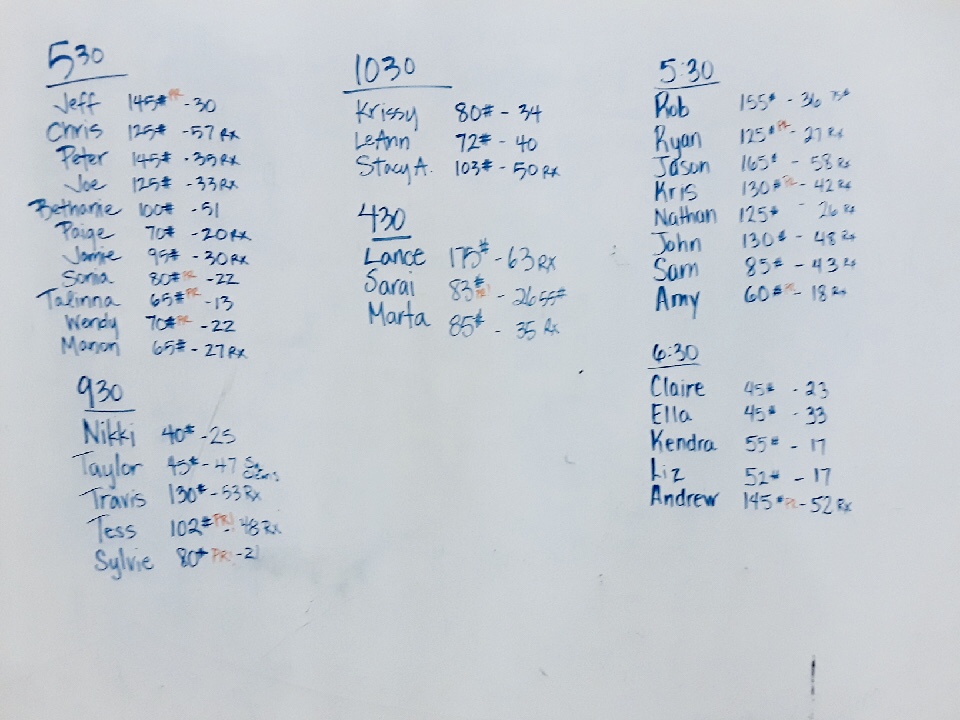 530
Jeff 145# PR - 30
Chris 125# - 57 Rx
Peter 145# - 35 Rx
Joe 125# - 33 Rx
Bethanie 100# - 51
Paige 70# - 20 Rx
Jamie 95# - 30 Rx
Sonia 80# PR - 22
Talinna 65# PR - 13
Wendy 70# PR - 22
Manon 65# - 27 Rx
930
Nikki 40# - 25
Taylor 45# - 47
Travis 130# - 53 Rx
Tess 102# PR! - 48 Rx
Sylvie 80# PR! - 21
1030
Krissy 80# - 34
LeAnn 72# - 40
Stacy A. 103# - 50 Rx
430
Lance 175# - 63 Rx
Sarai 83# PR! - 26 55#
Marta 85# - 35 Rx
5:30
Rob 155# - 36 75#
Ryan 125# PR - 27 Rx
Jason 165# - 58 Rx
Kris 130# PR - 42 Rx
Nathan 125# - 26 Rx
John 130# - 48 Rx
Sam 85# - 43 Rx
Amy 60# PR - 18 Rx
6:30
Claire 45# - 23
Ella 45# - 33
Kendra 55# - 17
Liz 52# - 17
Andrew 145# PR - 52 Rx